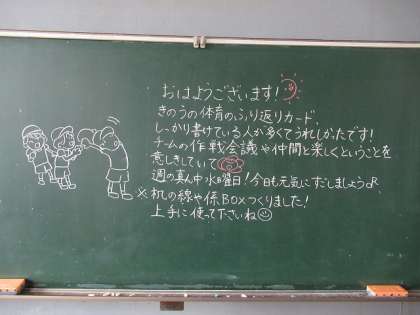 おはようございます!
きのうの体育のふり返りカード、
しっかり書けている人が多くてうれしかったです!
チームの作戦会議や仲間と楽しくということを
意しきしていて
週の真ん中水曜日!今日も元気にすごしましょう♪
※机の線や係BOXつくりました!
上手に使って下さいね☺